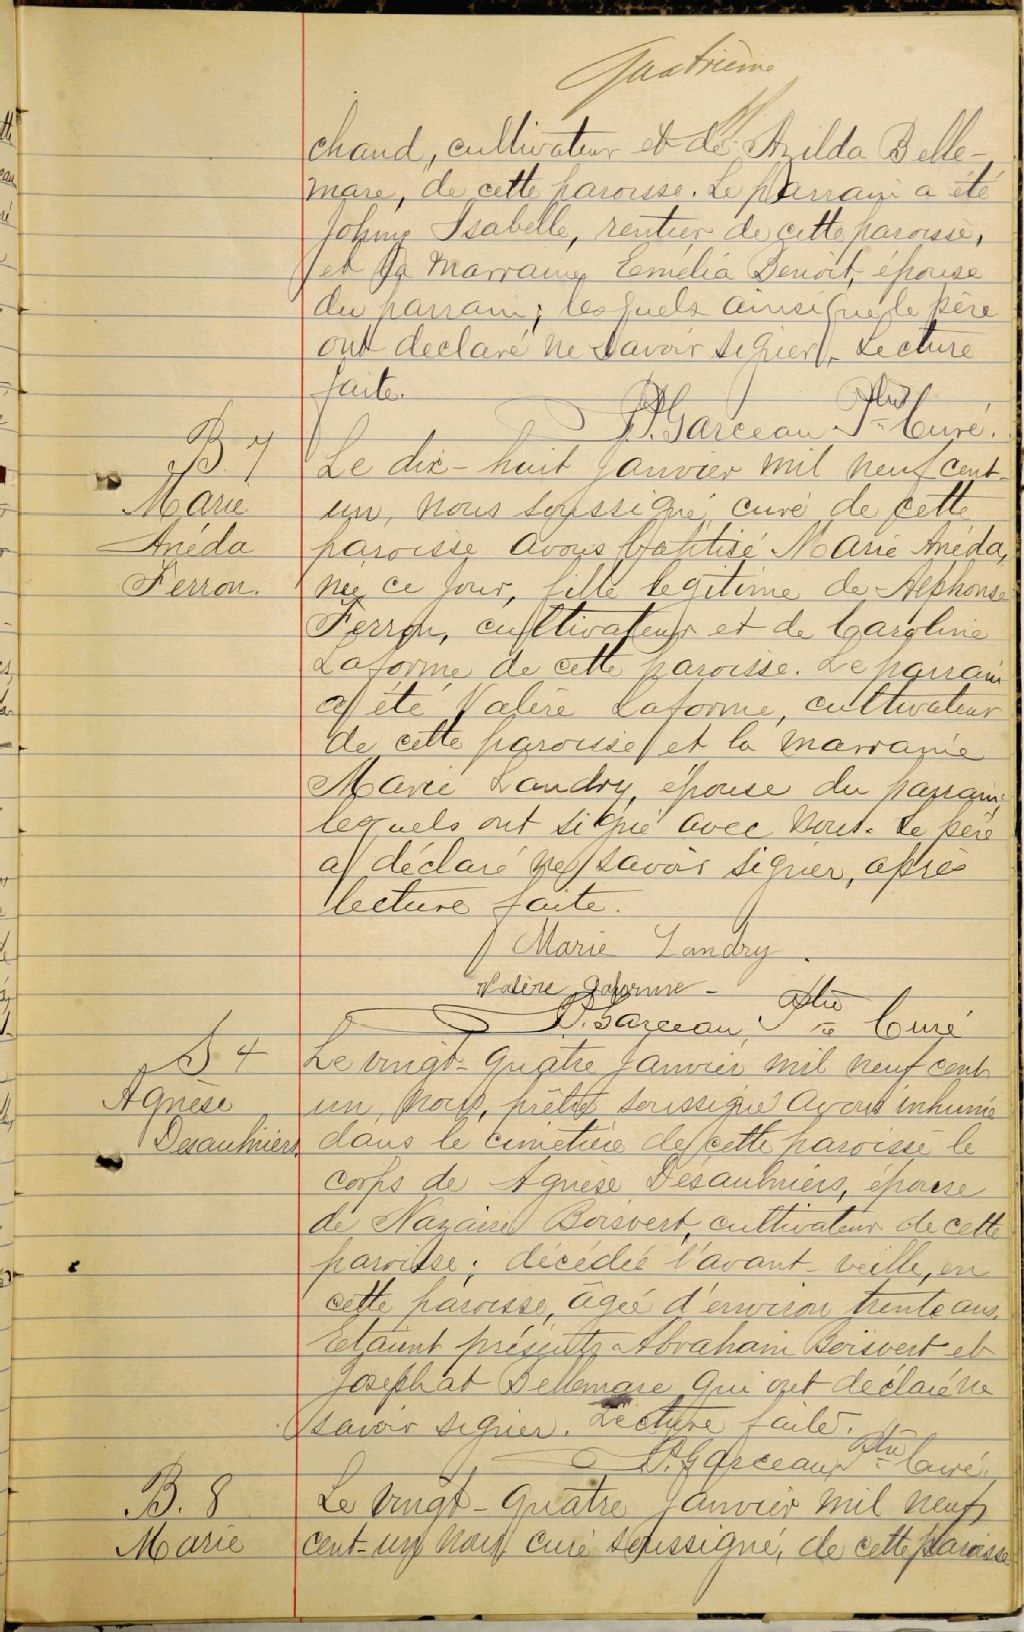 Quatrième
chand, cultivateur et de Azilda Belle-
mare, de cette paroisse. Le parrain a été
Johny Isabelle, rentier de cette paroisse,
et la marraine Emélia Benoit, épouse
du parrain; lesquels ainsi que le père
ont declaré ne savoir signer. Lecture
faite.
D. Garceau Ptre Curé.
B. 7
Marie
Anéda
Ferron.
Le dix-huit Janvier mil neuf cent-
un, nous soussigné, curé de cette
paroisse avons baptisé Marie Anéda,
née ce jour, fille legitime de Alphonse
Ferron, cultivateur et de Caroline
Laforme de cette paroisse. Le parrain
a été Valère Laforme, cultivateur
de cette paroisse et la marraine
Marie Landry, épouse du parrain,
lesquels ont signé avec nous. Le père
a déclaré ne savoir signer, après
lecture faite.
Marie Landry.
Valère Laforme
D. Garceau, Ptre Curé
S 4
Agnèse
Desaulniers
Le vingt-quatre Janvier mil neuf cent
un, nous, prêtre soussigné avons inhumé
dans le cimetière de cette paroisse le
corps de Agnèse Desaulniers, épouse
de Nazaire Boisvert, cultivateur de cette
paroisse; décédée l'avant-veille, en
cette paroisse, âgée d'environ trente ans.
Etaient présents Abraham Boisvert et
Josephat Bellemare qui ont déclaré ne
savoir signer. Lecture faite.
D. Garceau, Ptre Curé.
B. 8
Marie
Le vingt-quatre Janvier mil neuf
cent-un nous curé soussigné, de cette paroisse